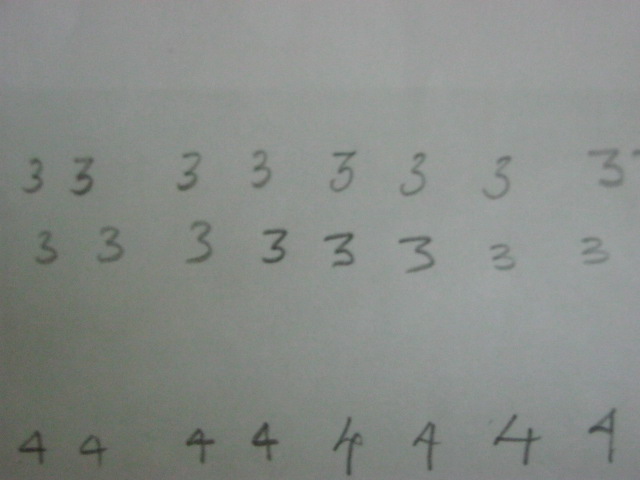 3 3 3 3 3 3 3 3
3 3 3 3 3 3 3 3
4 4 4 4 4 4 4 4